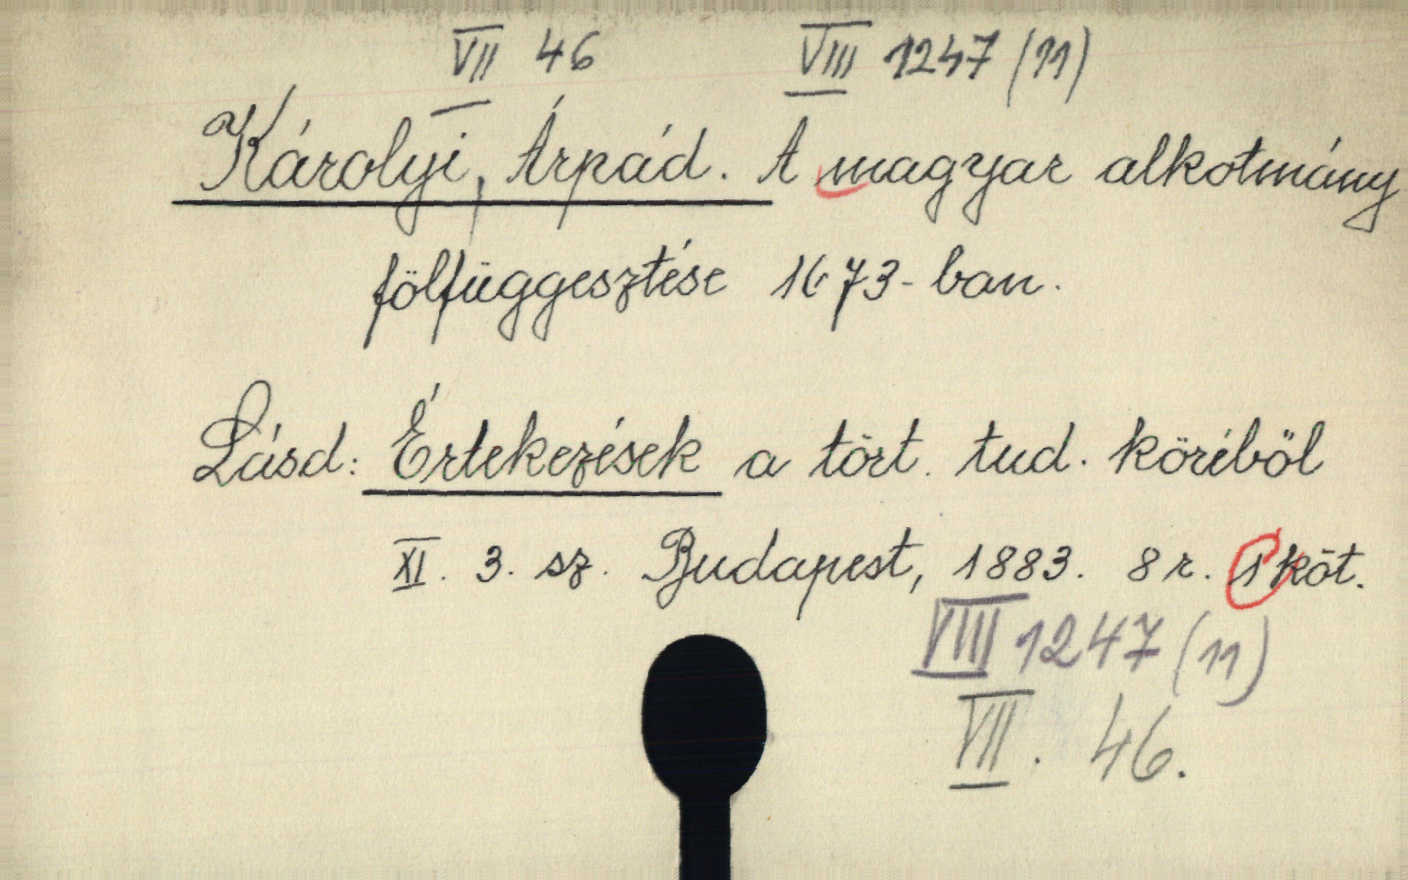 VII 46 VIII 1247 (11)
Károlyi, Árpád. A magyar alkotmány
fölfüggesztése 1673-ban.
Lásd: Értekezések a tört. tud. köréből
XI. 3. sz. Budapest, 1883. 8 r. 1 köt.
VIII 1247 (11)
VII. 46.